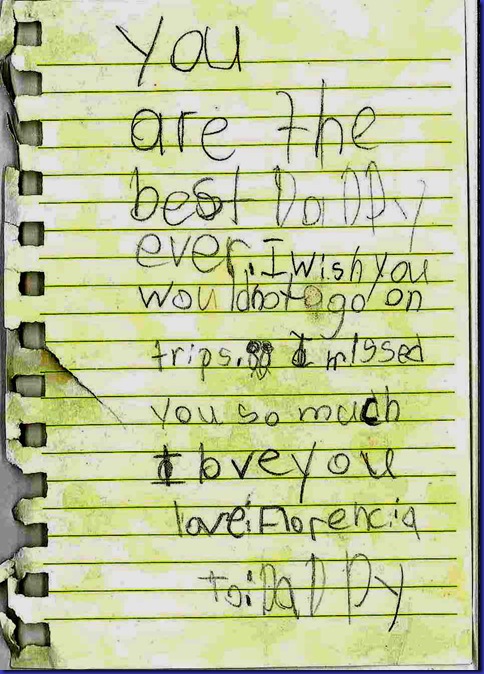 you
are the
best DaDDy
ever. I wish you
would not go on
trips. I missed
you so much
I love you
love: Florencia
to: DaDDy